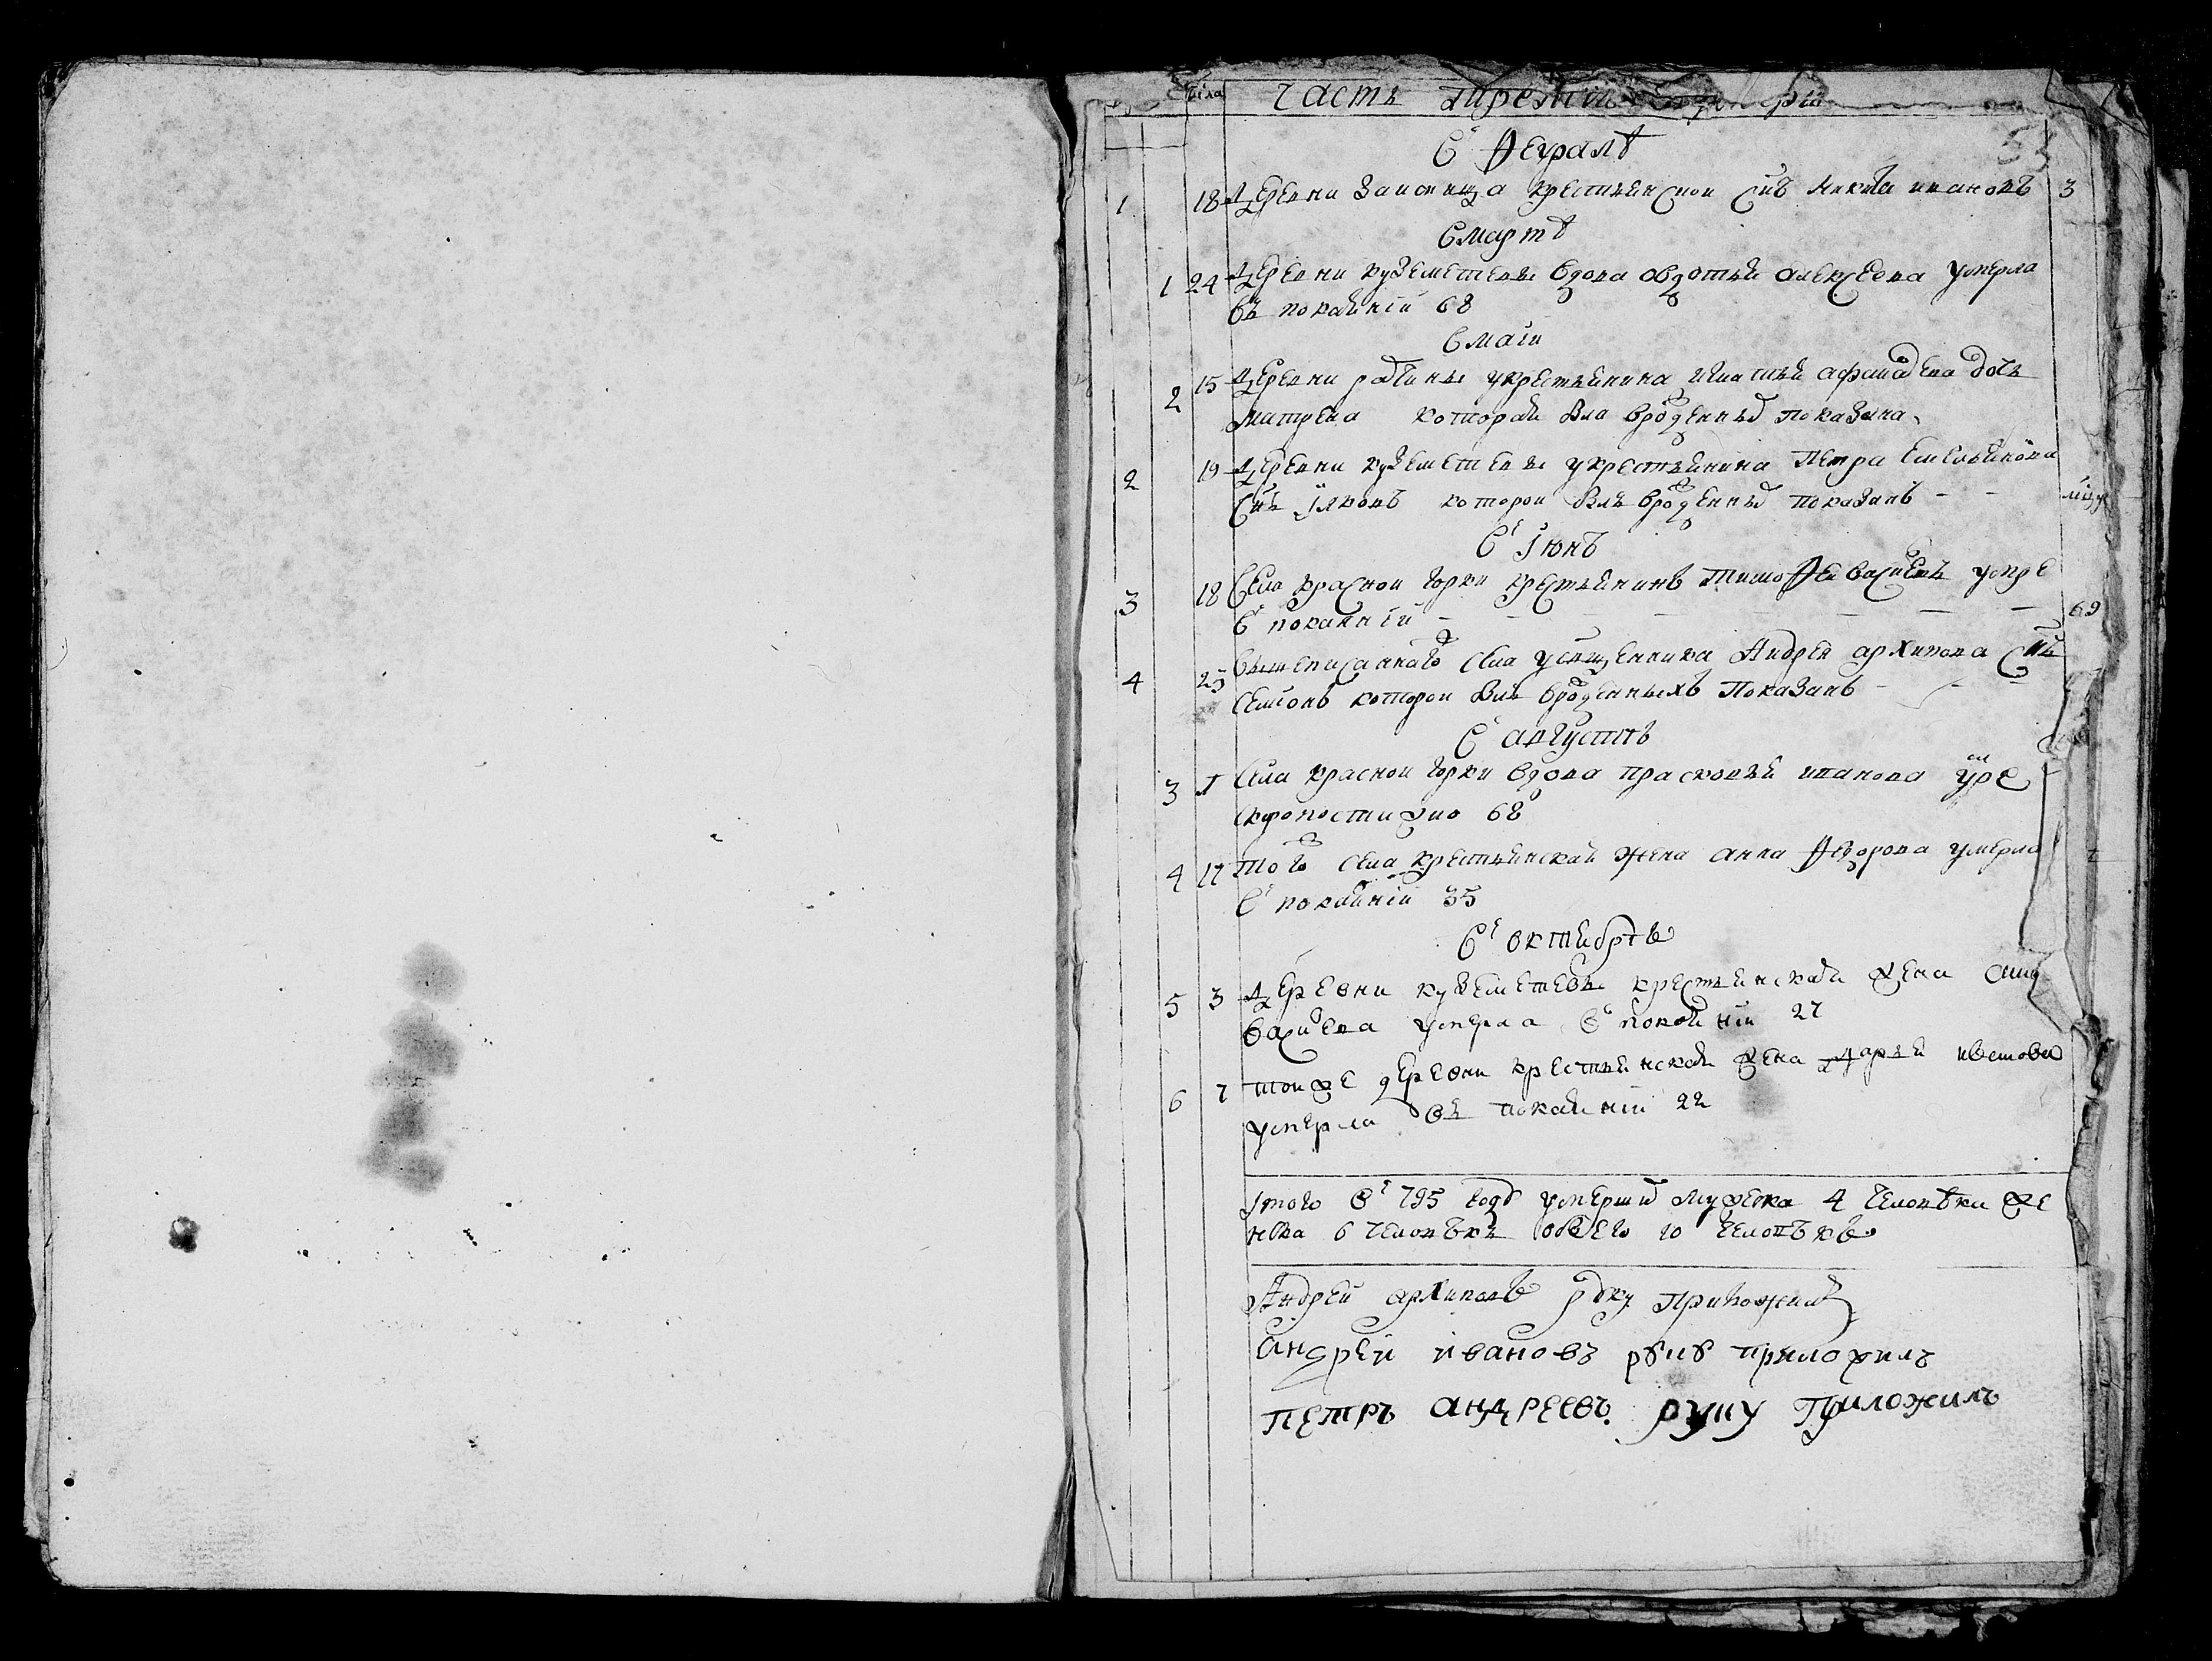 числа Часть третия
53
Въ Февралѣ
1 18 Деревни крестьянской снъ Никита Ивановъ 3
В Мартѣ
1 24 Деревни Куземетевы вдова Овдотья Алексеева умерла
въ покаяніи 68
В Маіи
2 15 Деревни у крестьянина дочь
Матрена которая в рожденныхъ показана
2 19 Деревни Куземетевы у крестьянина Петра Емельянова
снъ Ияковъ которой в рожденныхъ показанъ
Въ Июнѣ
3 18 Села Красной Горки крестьянинъ Тимофей Васильевъ умре
въ покаяніи 69
4 25 вышеписаннаго села у священника Андрея Архипова снъ
Семионъ которой в рожденныхъ показанъ
Въ Августѣ
3 1 Села Красной Горки вдова Прасковья Иванова умре
скоропостижно 68
4 17 того села крестьянская жена Анна Федорова умерла
въ покаяніи 35
Въ Октябрѣ
5 3 Деревни Куземетевы крестьянская жена
Васильева умерла въ покаяніи 27
6 7 тои же деревни крестьянская жена Дарья
умерла въ покаяніи 22
Итого въ 795 году умерших мужеска 4 человѣка же
нска 6 человѣкъ обоего 10 человѣкъ
Андрей Архиповъ руку приложилъ
Андрей Ивановъ руку приложилъ
Петръ Андреевъ руку приложилъ